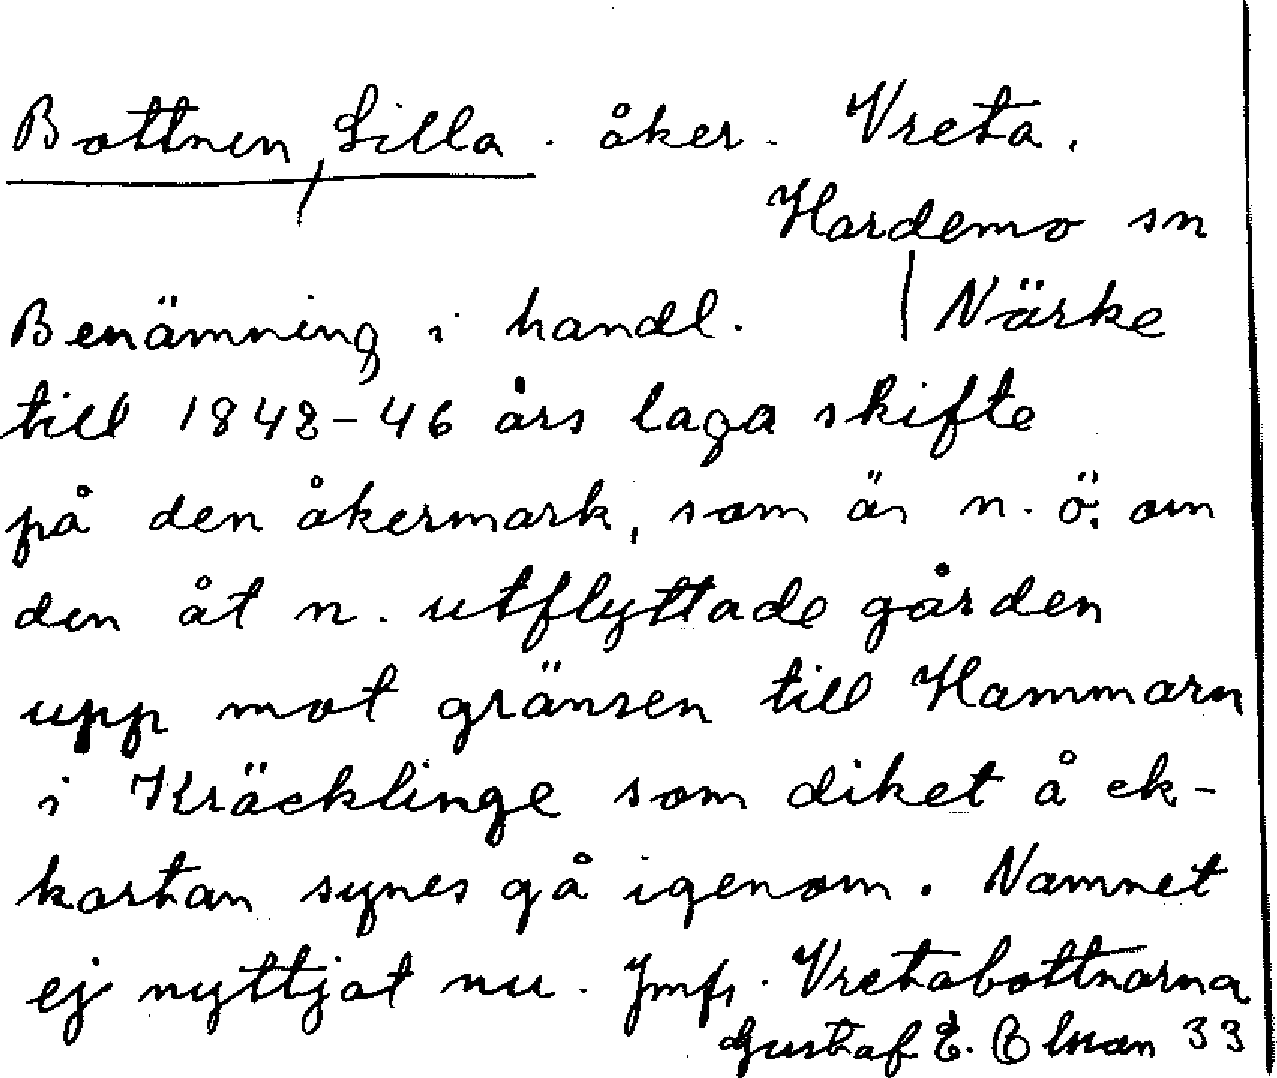 Bottnen, Lilla. åker. Vreta.
Hardemo sn
Benämning i handl. | Närke
till 1842-46 års laga skifte
på den åkermark, som är n. ö. om
den åt n. utflyttade gården
upp mot gränsen till Hammarn
i Kräcklinge som diket å ek-
kartan synes gå igenom. Namnet
ej nyttjat nu. Jmfr. Vretabottnarna
Gustaf E. 33